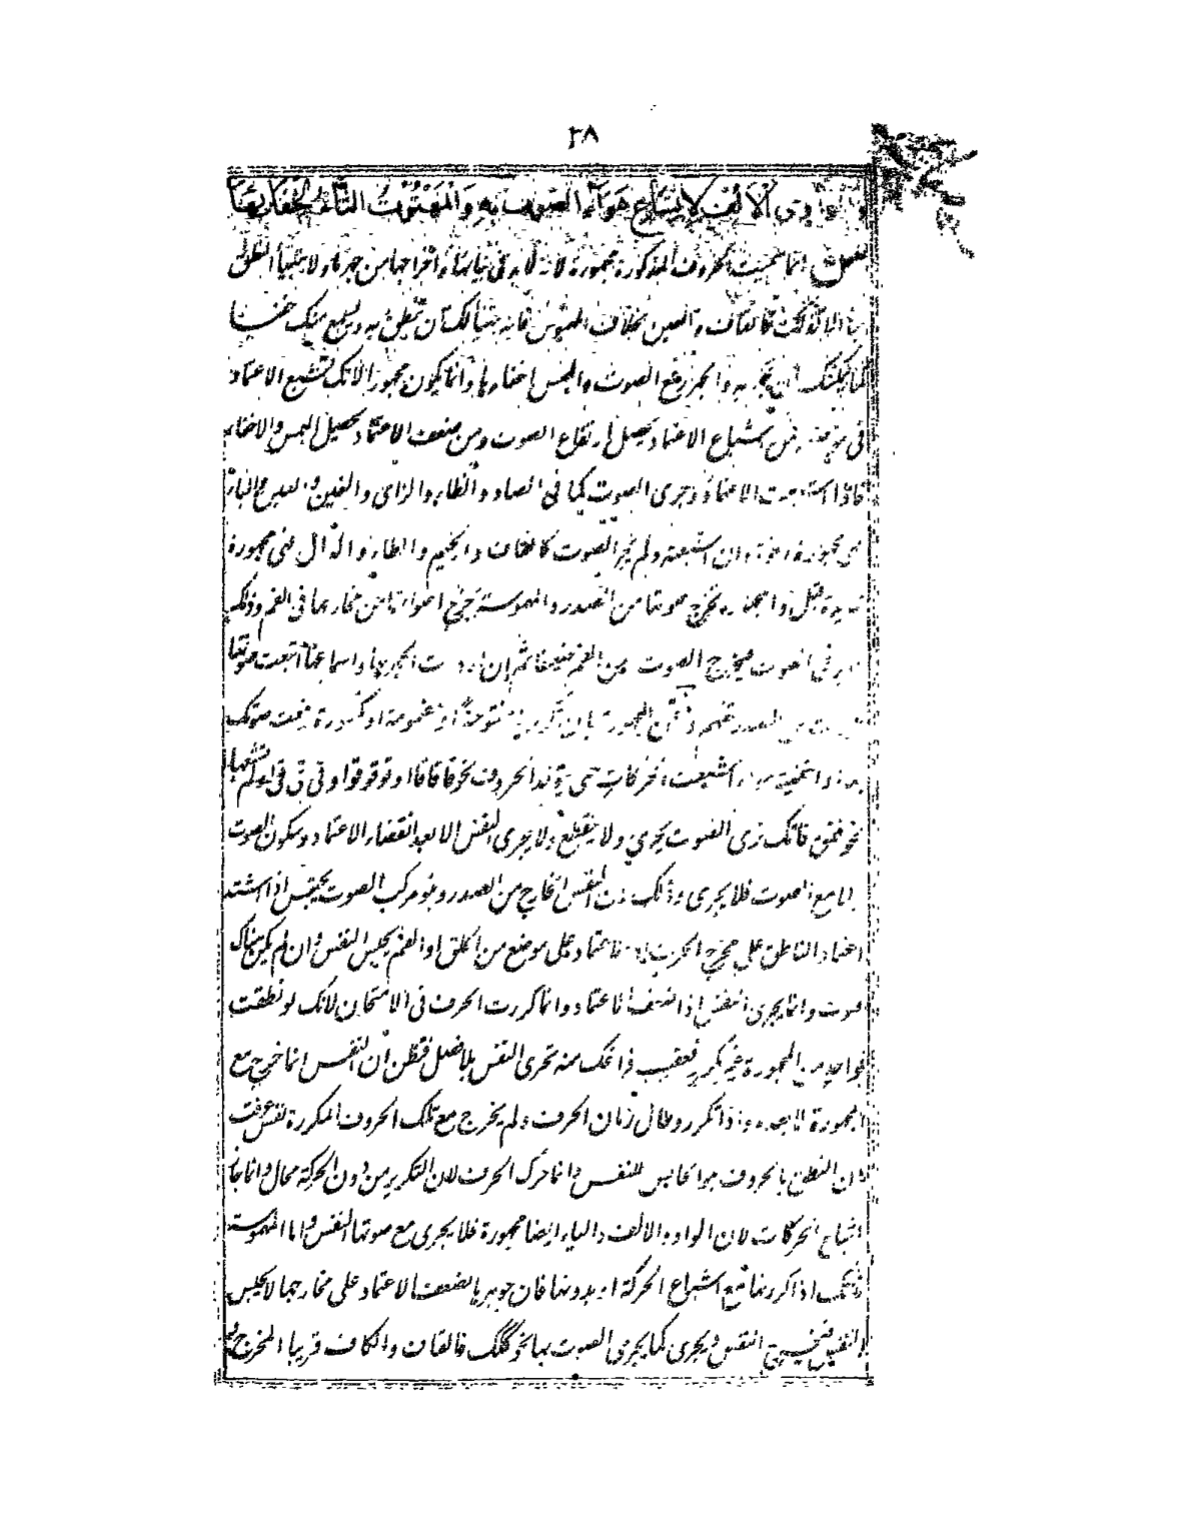 ٣٨
والهاوى الألف لاتساع هواء الصوت به والمهتوت التاء لخفائها
انما سميت الحروف المذكورة مجهورة لانه لابد فى بيانها واخراجها من جهر ما ولا يتهيأ النطق
بها الا كذلك كالقاف والعين بخلاف المهموس فانه يتهيا لك ان تنطق به ويسمع منك خفيا
كما يمكنك ان تجهر به والجهر رفع الصوت والهمس اخفاؤها وانما يكون مجهورا لانك تشبع الاعتماد
فى موضعه فمن اشباع الاعتماد يحصل ارتفاع الصوت ومن ضعف الاعتماد يحصل الهمس والاخفاء
فاذا اشبعت الاعتماد وجرى الصوت كما فى الضاد والظاء والزاى والغين والعين والياء
فهى مجهورة رخوة وان اشبعته ولم يجر الصوت كالقاف والجيم والطاء والدال فهى مجهورة
شديدة قيل والمجهورة تخرج صوتها من الصدر والمهموسة تخرج اصواتها من مخارجها فى الفم وذلك
فى الصوت فيخرج الصوت من الفم ضعيفا ثم إن اردت الجهر بها واسماعها اتبعت صوتها
من الصدر ليفهم أن المجهورة بان تكررها مفتوحة او مضمومة او مكسورة رفعت صوتك
بها او اخفيته سواء اشبعت الحركات حتى تتولد الحروف نحو قاقاقا او قوقوقو او قى قى قى او لم تشبعها
نحو ققق فانك ترى الصوت يجرى ولا ينقطع ولا يجرى النفس الا بعد انقضاء الاعتماد وسكون الصوت
اما مع الصوت فلا يجرى وذلك لان النفس الخارج من الصدر وهو مركب الصوت يحتبس اذا اشتد
اعتماد الناطق على مخرج الحرف اذ الاعتماد على موضع من الحلق او الفم يحبس النفس وان لم يكن هناك
صوت وانما يجرى النفس اذا ضعف الاعتماد وانما كررت الحرف فى الامتحان لانك لو نطقت
بواحد من المجهورة غير مكرر فعقيب فراغك منه تجرى النفس بلا فصل فتظن أن النفس انما خرج مع
المجهورة لا بعده واذا تكرر وطال زمان الحرف ولم يخرج مع تلك الحروف المكررة نفس عرفت
ان النطق بالحروف هو الحابس للنفس وانما حرك الحرف لان التكرير من دون الحركة محال وانما جاز
اشباع الحركات لان الواو والالف والياء ايضا مجهورة فلا يجرى مع صوتها النفس واما المهموسة
فانك اذا كررتها مع اشباع الحركة او بدونها فان جوهرها لضعف الاعتماد على مخارجها لا يحبس
النفس فيخرج النفس ويجرى كما يجرى الصوت بها نحو ككك فالقاف والكاف قريبا المخرج